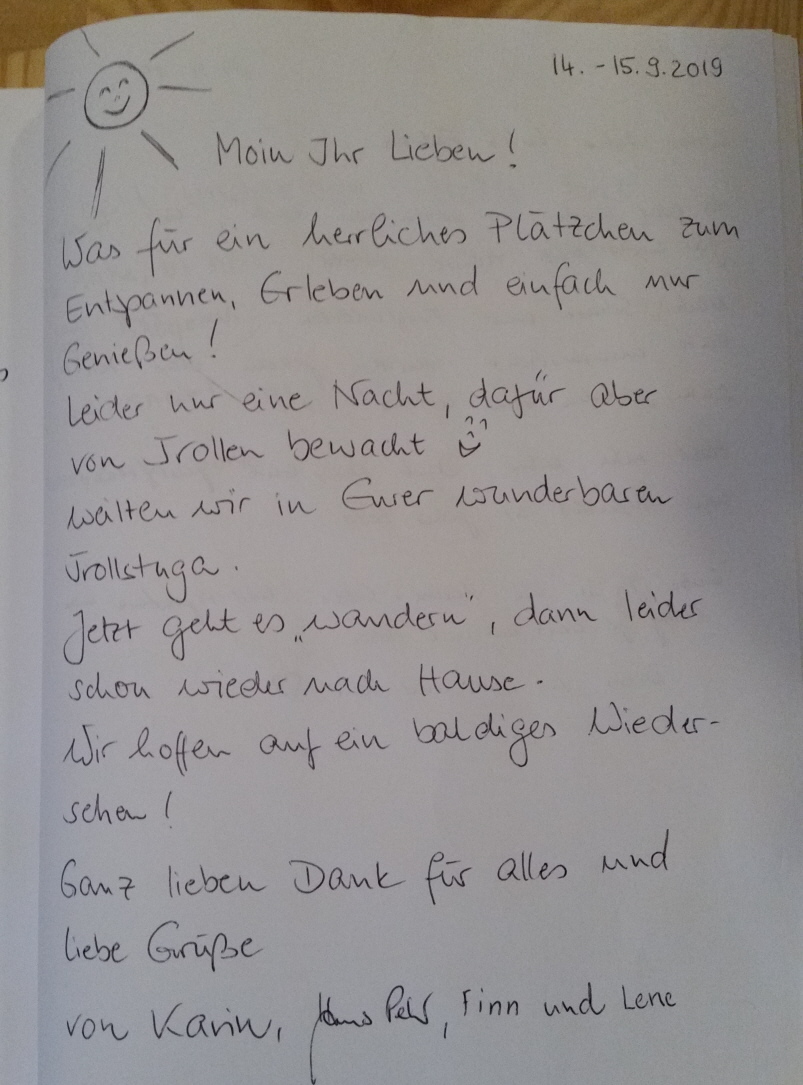 14. - 15.9.2019
Moin Ihr Lieben!
Was für ein herrliches Plätzchen zum
Entspannen, Erleben und einfach nur
Genießen!
Leider nur eine Nacht, dafür aber
von Trollen bewacht
weilten wir in Eurer wunderbaren
Trollstuga.
Jetzt geht es „wandern“, dann leider
schon wieder nach Hause.
Wir hoffen auf ein baldiges Wieder-
sehen!
Ganz lieben Dank für alles und
liebe Grüße
von Karin, Hans Peter, Finn und Lene